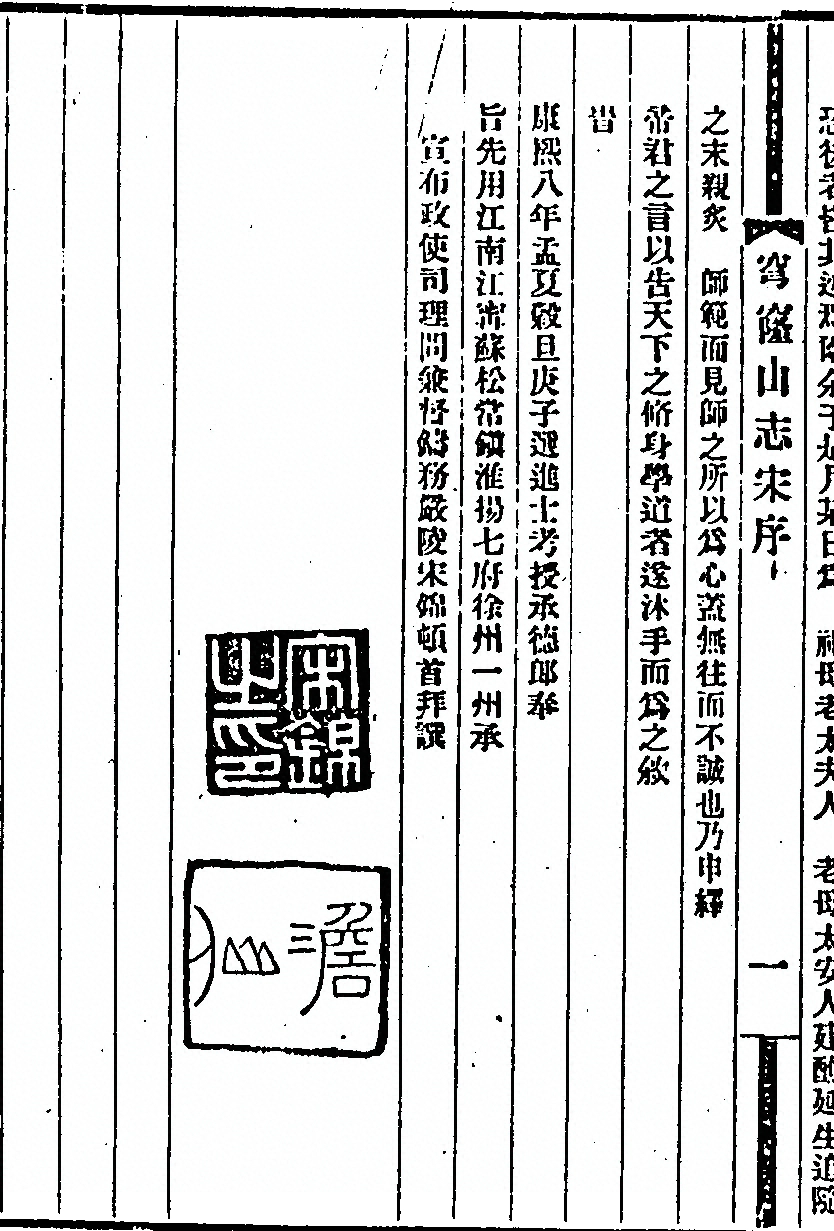 之末親炙　師範而見師之所以為心蓋無往而不誠也乃申繹
帝君之言以告天下之脩身學道者遂沐手而為之敘
旹
康熙八年孟夏穀旦庚子選進士考授承德郎奉
旨先用江南江寧蘇松常鎮淮揚七府徐州一州承
宣布政使司理問兼督鑄務嚴陵宋錦頓首拜譔
宋錦之印
澹仙
穹窿山志宋序
一